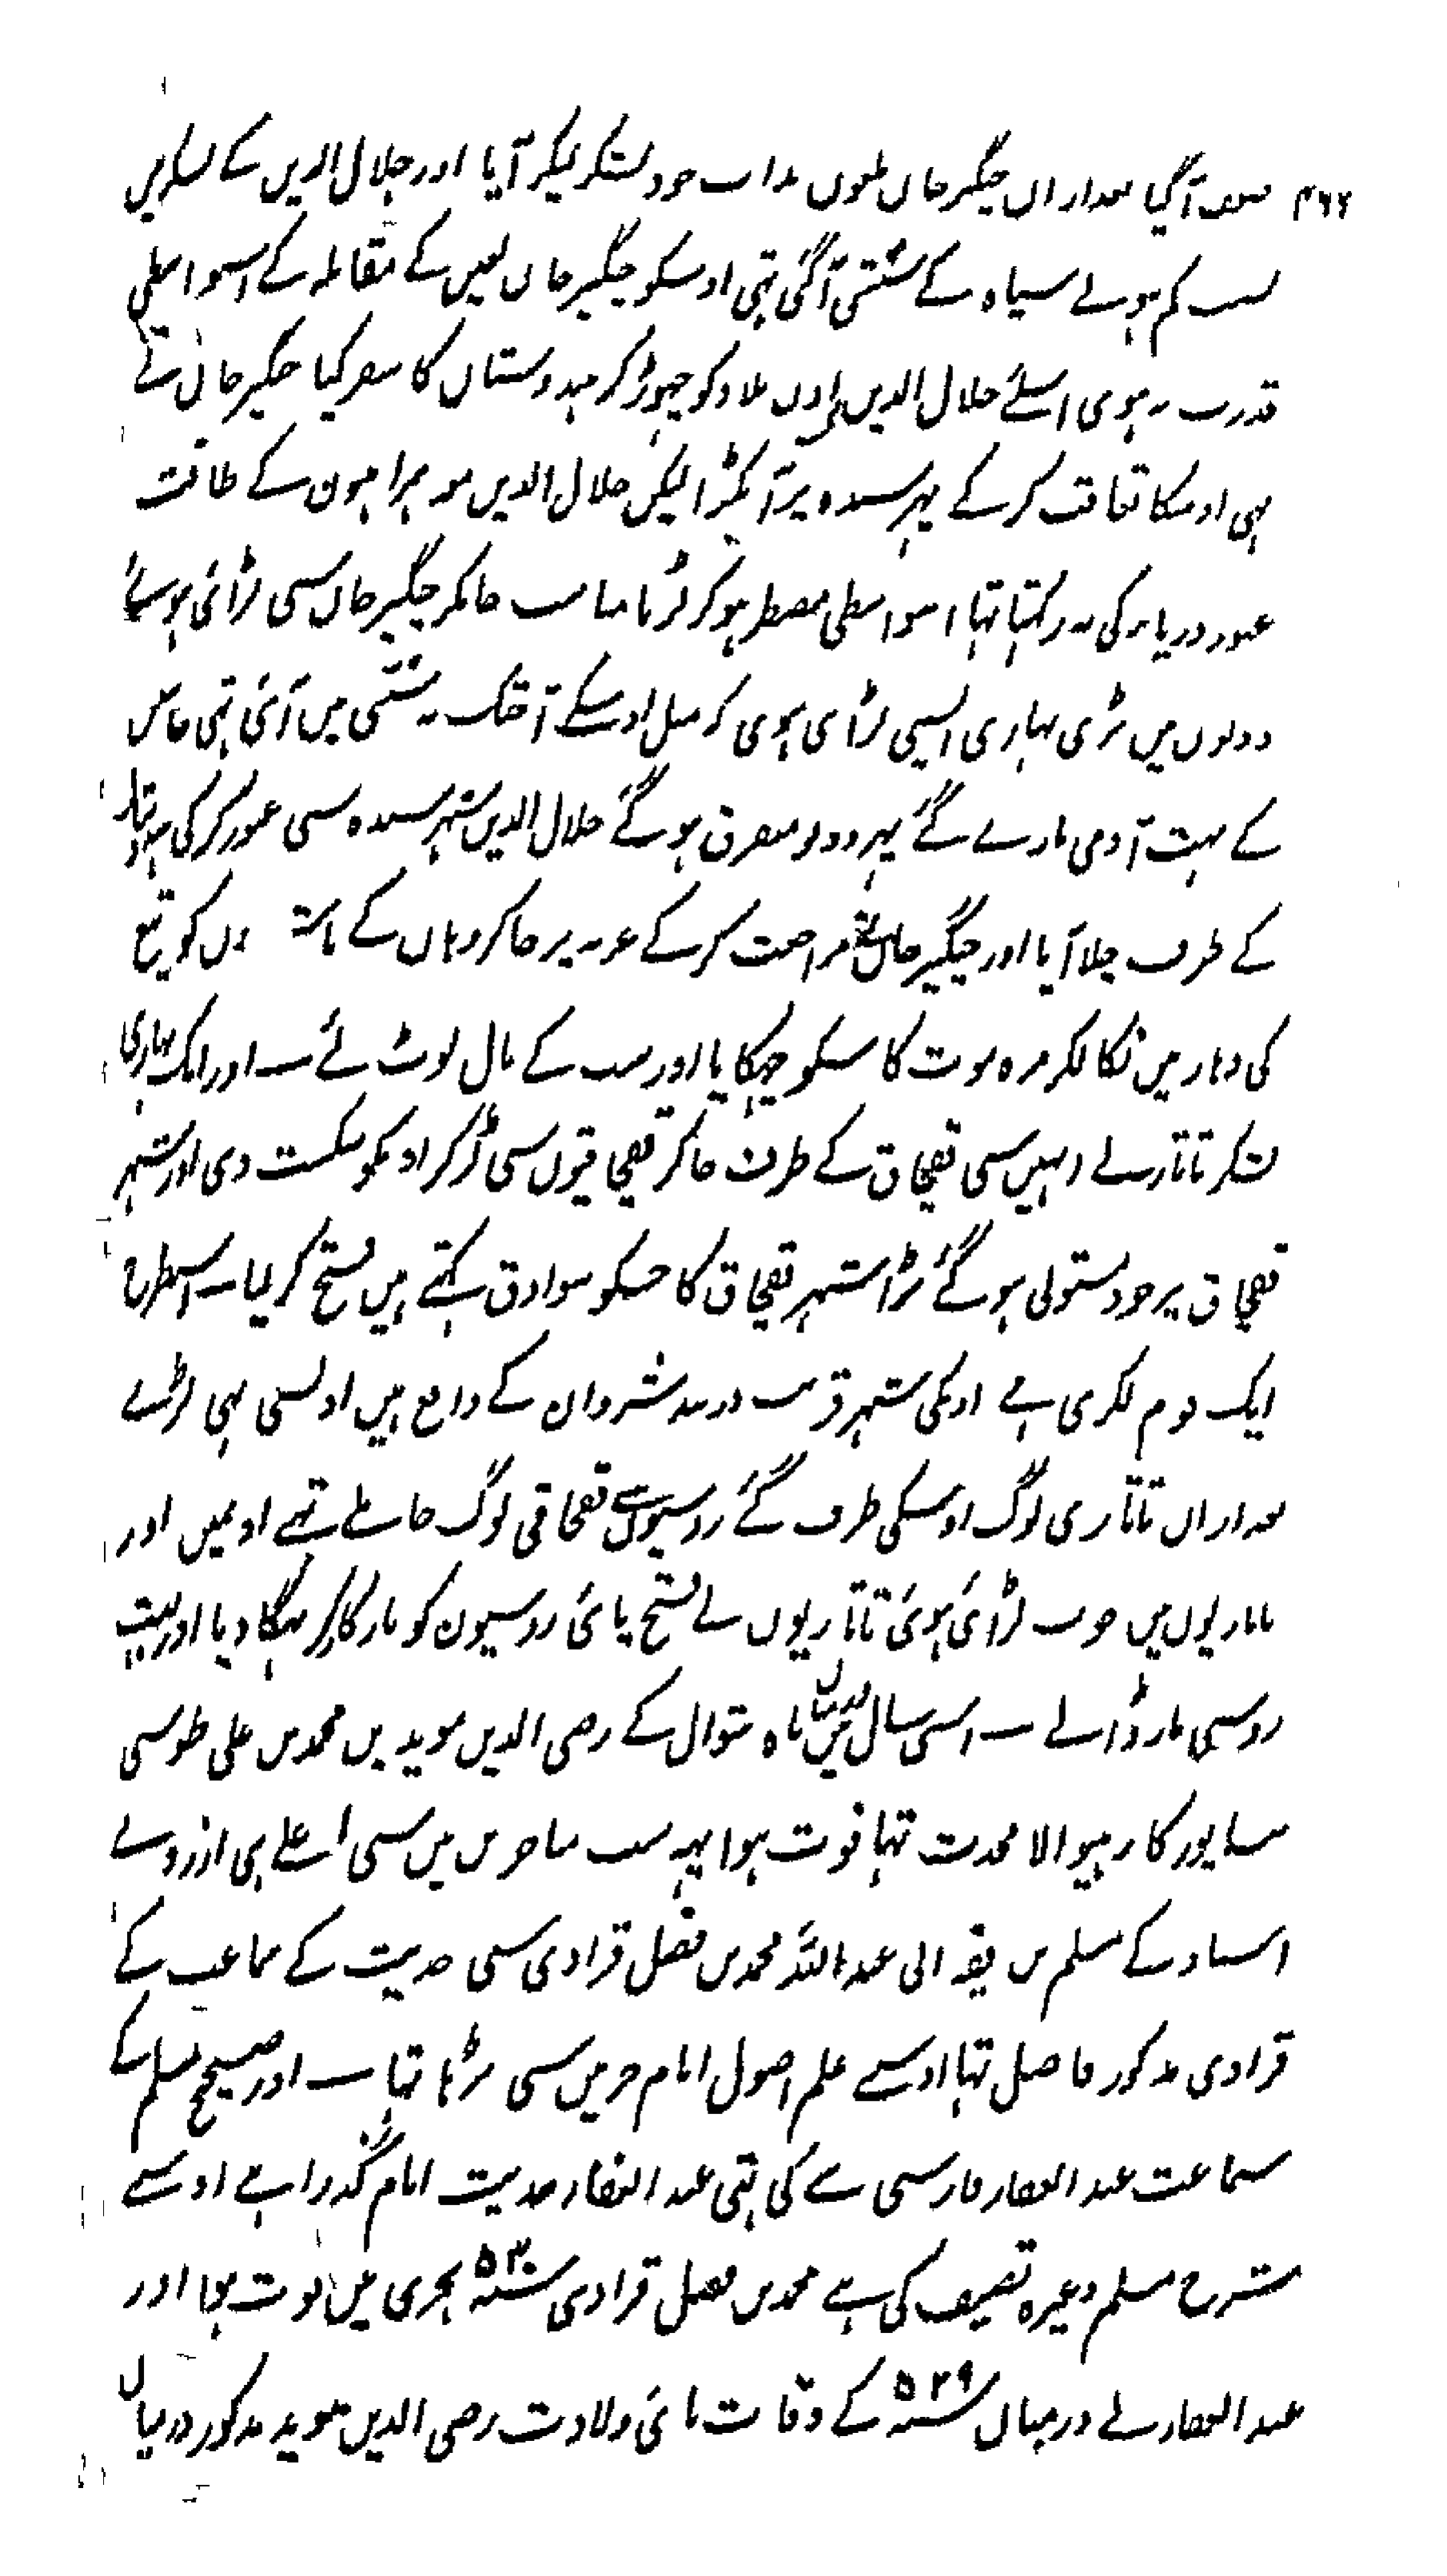 ۴۶۶ ضعف آگیا بعدازاں چنگیرخاں ملعوں بذات خود لشکر لیکر آیا اور جلال الدیں کے لشکر میں
بسبب کم ہونے سپاہ کے سستی آگئی تہی اوسکو چنگیرخاں لعیں کے مقابلہ کے اسواسطی
قدرت نہ ہوی اسلئے جلال الدیں نے اوں بلاد کو چہوڑ کر ہندوستاں کا سفر کیا چنگیرخاں نے
بہی اوسکا تعاقب کر کے نہر سندہ پر آپکڑا لیکں جلال الدیں مع ہمراہیون کے طاقت
عبور دریا کی نہ رکہتا تہا اسواسطی مضطر ہوکر لڑنا مناسب جانکر چنگیرخاں سی لڑائی ہوئی
دونوں میں بڑی بہاری ایسی لڑای ہوی کہ مثل اوسکے آجتک نہ سننی میں آئی تہی جانبیں
کے بہت آدمی مارے گئے پہر دونو متفرق ہو گئے جلال الدیں نہر سندہ سی عبور کر کی ہندوستاں
کے طرف چلا آیا اور چنگیرخاں نے مراجعت کر کے غزنہ پر جا کر وہاں کے باشندوں کو تیغ
کی دہار میں نکالکر مزہ موت کا سبکو چکہایا اور سب کے مال لوٹ لئے ۔ اور ایک بہاری
لشکر تاتار نے وہیں سی قفچاق کے طرف جا کر قفچاقیوں سی لڑ کر اونکو شکست دی اور شہر
قفچاق پر خود مستولی ہو گئے بڑا شہر قفچاق کا جسکو سوادق کہتے ہیں فتح کر لیا ۔ اسطرح
ایک قوم لکزی ہے اونکی شہر قریب دربند شروان کے واقع ہیں اونسی بہی لڑے
بعدازاں تاتاری لوگ اوسکی طرف گئے روسیوں سے قفچاقی لوگ جا ملے تہے اونمیں اور
تاتاریوں میں خوب لڑائی ہوئی تاتاریوں نے فتح پائی روسیون کو مار کر بہگا دیا اور بہت
روسی مار ڈالے ۔ اسی سال میں ماہ شوال کے رضی الدیں موید بں محمد بں علی طوسی
نیساپور کا رہنیوالا محدث تہا فوت ہوا یہہ سب متاخریں میں سی اعلے ہی ازروئے
اسناد کے مسلم فقہ ابی عبداللہ محمد بں فضل فراوی سی حدیث کے سماعت کے
فراوی مذکور فاضل تہا اوسے علم اصول امام حرمیں سی پڑہا تہا ۔ اور صحیح مسلم کے
سماعت عبدالغفار فارسی سے کی تہی عبدالغفار حدیث امام گذرا ہے اوسے
شرح مسلم وغیرہ تصنیف کی ہے محمد بں فضل فراوی ۵۳۰ سنہ ہجری میں فوت ہوا اور
عبدالغفار نے درمیاں ۵۲۹ سنہ کے وفات پائی ولادت رضی الدیں موید مذکور درمیاں